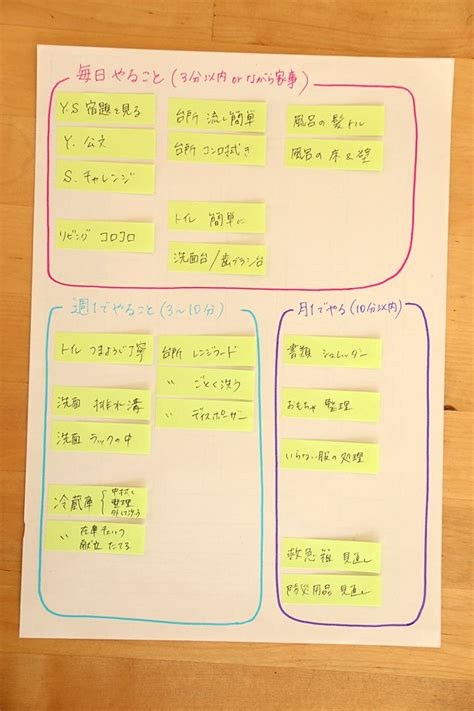 毎日やること (3分以内 or ながら家事)
Y.S 宿題を見る
Y. 公文
S. チャレンジ
リビング コロコロ
台所 流し簡単
台所 コンロ拭き
トイレ 簡単に
洗面台/歯ブラシ台
風呂の髪トル
風呂の床&壁
週1でやること (3〜10分)
トイレ つまようじ丁寧
洗面 排水溝
洗面 ラックの中
冷蔵庫
整理
〃 在庫チェック
献立 たてる
台所 レンジフード
〃 ごとく洗う
〃 ディスポーザー
月1でやる (10分以内)
書類 シュレッダー
おもちゃ 整理
いらない服の処理
救急箱 見直し
防災用品 見直し